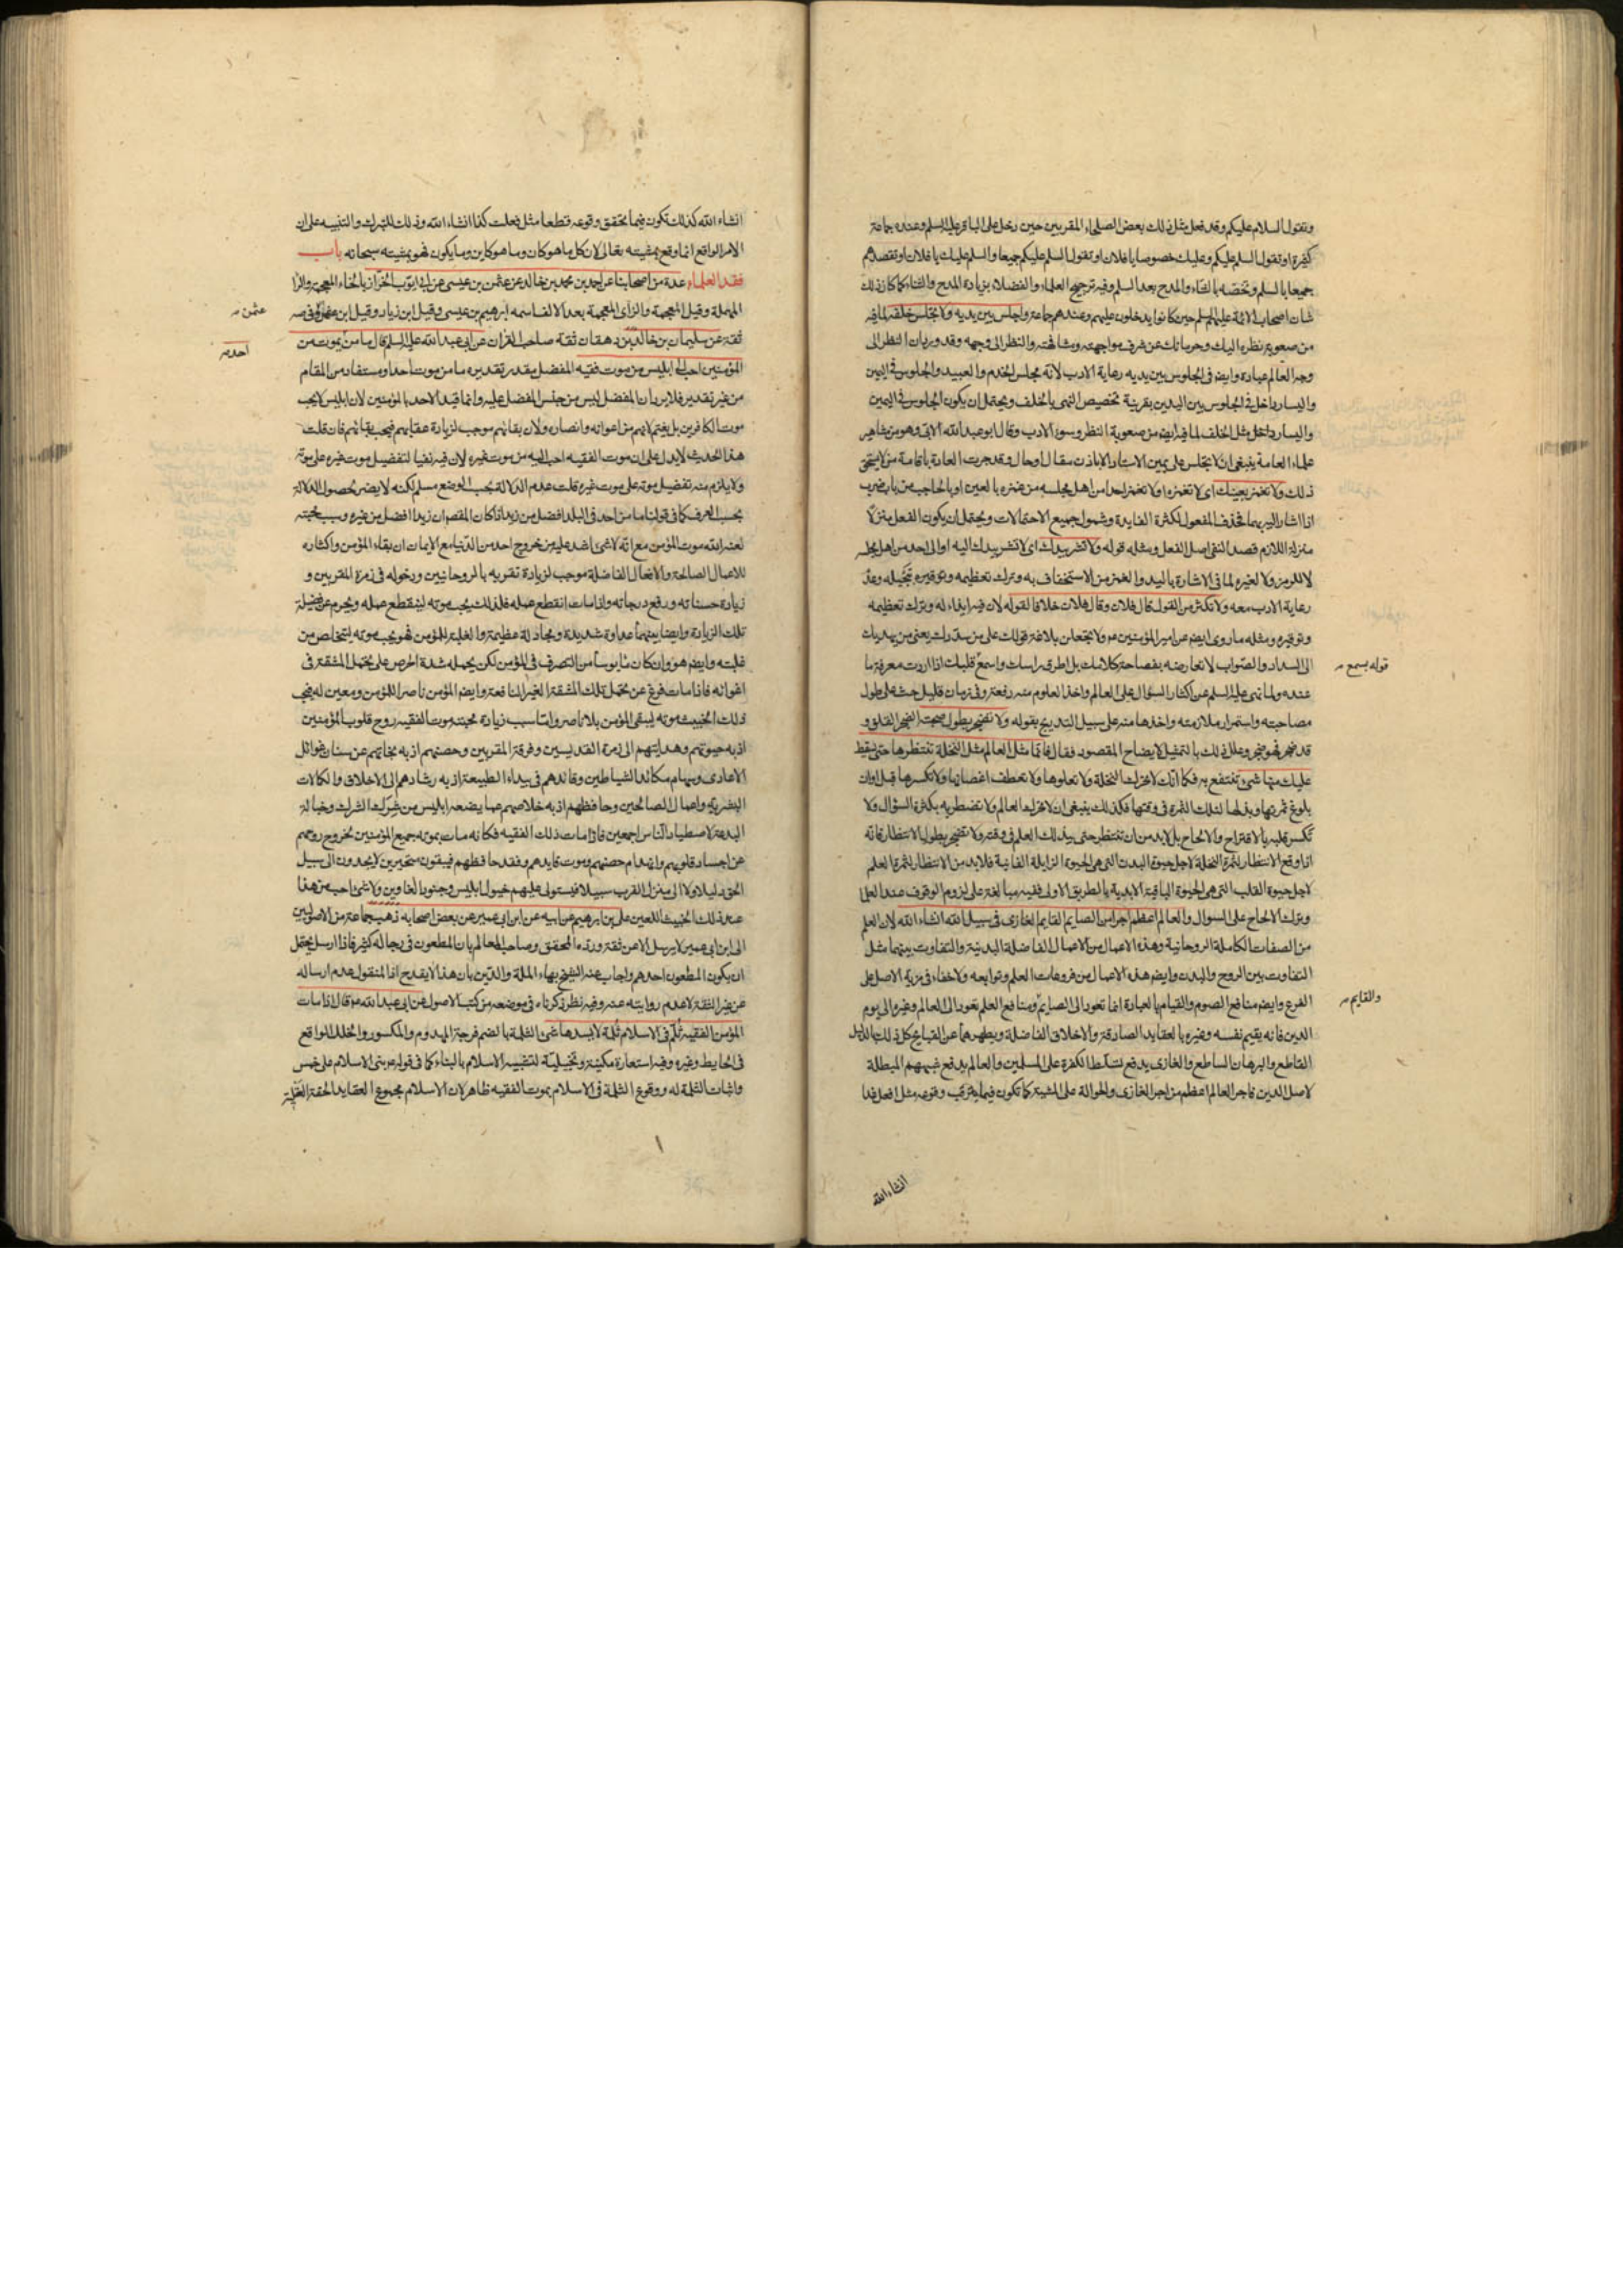 وتقول السلام عليكم وقد فعل مثل ذلك بعض الصلحاء المقربين حين دخل على الباقر عليه السلم وعنده جماعة
كثيرة او تقول السلم عليكم وعليك خصوصا يا فلان او تقول السلم عليكم جميعا والسلم عليك يا فلان او تقصدهم
جميعا بالسلم وتخصه بالثناء والمدح بعد السلم وفيه ترجيح العلماء والفضلاء بزيادة المدح والثناء كما كان ذلك
شان اصحاب الائمة عليهم السلم حين كانوا يدخلون عليهم وعندهم جماعة واجلس بين يديه ولا تجلس خلفه لما فيه
من صعوبة نظره اليك وحرمانك عن شرف مواجهته ومشافهته والنظر الى وجهه وقد ورد ان النظر الى
وجه العالم عبادة وايضا في الجلوس بين يديه رعاية الادب لانه مجلس الخدم والعبيد والجلوس في اليمين
واليسار داخل في الجلوس بين اليدين بقرينة تخصيص النهى بالخلف ويحتمل ان يكون الجلوس في اليمين
واليسار داخل مثل الخلف لما فيه ايضا من صعوبة النظر وسوء الادب وقال ابو عبد الله الابى وهو من مشاهير
علماء العامة ينبغى ان لا يجلس على يمين الاستاد الا باذن مقال او حال وقد جرت العادة باقامة من لا يستحق
ذلك ولا تغمز بعينك اى لا تغمزه او لا تغمز احدا من اهل مجلسه من غمزه بالعين او بالحاجب من باب ضرب
اذا اشار اليه بهما فحذف المفعول لكثرة الفايدة وشمول جميع الاحتمالات ويحتمل ان يكون الفعل منزلا
منزلة اللازم قصدا لنفى اصل الفعل ومثله قوله ولا تشر بيدك اى لا تشر بيدك اليه او الى احد من اهل مجلسه
لا للرمز ولا لغيره لما في الاشارة باليد والغمز من الاستخفاف به وترك تعظيمه وتوقيره تبجيله وعدم
رعاية الادب معه ولا تكثر من القول قال فلان وقال فلان خلافا لقوله لان فيه ايذاء له وترك تعظيمه
وتوقيره ومثله ما روى ايضا عن امير المؤمنين ع ولا تجعلن بلاغة قولك على من سددك يعنى من يهديك
الى السداد والصواب لا تعارضه بفصاحة كلامك بل اطرق راسك واسمع قلبك اذا اردت معرفة ما
قوله بسمع
عنده ولما نهى عليه السلم عن اكثار السؤال على العالم واخذ العلوم منه دفعة وفي زمان قليل حثه على طول
مصاحبته واستمرار ملازمته واخذها منه على سبيل التدريج بقوله ولا تضجر بطول صحبته الضجر القلق و
قد ضجر فهو ضجر وعلل ذلك بالتمثيل لايضاح المقصود فقال فانما مثل العالم مثل النخلة تنتظرها حتى يسقط
عليك منها شىء تنتفع به فكما انك لا تحرك النخلة ولا تعلوها ولا تعطف اغصانها ولا تكسرها قبل اوان
بلوغ ثمرتها وبذلها لتلك الثمرة في وقتها فكذلك ينبغى ان لا تحرك العالم ولا تضطر به بكثرة السؤال ولا
تكسر قلبه بالاقتراح والالحاح بل لا بد من ان تنتظر حتى يبذلك العلم في وقته ولا تضجر بطول الانتظار فانه
اذا وقع الانتظار لثمرة النخلة لاجل حيوة البدن التى هى الحيوة الزايلة الفانية فلا بد من الانتظار لثمرة العلم
لاجل حيوة القلب التى هى الحيوة الباقية الابدية بالطريق الاولى ففيه مبالغة على لزوم الوقوف عند العلماء
وترك الالحاح على السوال والعالم اعظم اجرا من الصايم القايم الغازى في سبيل الله انشاء الله لان العلم
من الصفات الكاملة الروحانية وهذه الاعمال من الاعمال الفاضلة البدنية والتفاوت بينهما مثل
التفاوت بين الروح والبدن وايضا هذه الاعمال من فروعات العلم وتوابعه ولا خفاء في مزية الاصل على
الفرع وايضا منافع الصوم والقيام بالعبادة انما تعود الى الصايم ومنافع العلم تعود الى العالم وغيره الى يوم
والقايم
الدين فانه يقيم نفسه وغيره بالعقايد الصادقة والاخلاق الفاضلة ويطهرهما عن القبايح كل ذلك بالدليل
القاطع والبرهان الساطع والغازى يدفع تسلط الكفرة على المسلمين والعالم يدفع شبههم المبطلة
لاصل الدين فاجر العالم اعظم من اجر الغازى والحوالة على المشية كما تكون فيما يترقب وقوعه مثل افعل غدا
انشاء الله
انشاء الله كذلك تكون فيما تحقق وقوعه قطعا مثل فعلت كذا انشاء الله وذلك للتبرك والتنبيه على ان
الامر الواقع انما وقع بمشيته تعالى لان كل ما هو كان وما هو كاين وما يكون فهو بمشيته سبحانه باب
فقد العلماء عدة من اصحابنا عن احمد بن محمد بن خالد عن عثمن بن عيسى عن ابى ايوب الخزاز بالخاء المعجمة والراء
المهملة وقيل المعجمة والزاى المعجمة بعد الالف اسمه ابرهيم بن عيسى وقيل ابن زياد وقيل ابن
عثمن
ثقة عن سليمان بن خالد بن دهقان ثقة صاحب القران عن ابى عبد الله عليه السلم قال ما من يموت من
احد
المؤمنين احب الى ابليس من موت فقيه المفضل مقدر تقديره ما من موت احد او مستفاد من المقام
من غير تقدير فلا يرد ان المفضل ليس من جنس المفضل عليه وانما قيد الاحد بالمؤمنين لان ابليس لا يحب
موت الكافرين بل يغتم لانهم من اعوانه وانصاره ولان بقائهم موجب لزيادة عقابهم فيحب بقائهم فان قلت
هذا الحديث لا يدل على ان موت الفقيه احب اليه من موت غيره لان فيه نفيا لتفضيل موت غيره على موته
ولا يلزم منه تفضيل موته على موت غيره قلت عدم الدلالة بحسب الوضع مسلم لكنه لا يضر لحصول الدلالة
بحسب العرف كما في قولنا ما من احد في البلد افضل من زيد اذا كان المقصود ان زيدا افضل من غيره وسبب محبته
لعنه الله موت المؤمن مع انه لا شىء اشد عليه من خروج احد من الدنيا مع الايمان ان بقاء المؤمن واكثاره
للاعمال الصالحة والافعال الفاضلة موجب لزيادة تقربه بالروحانيين ودخوله في زمرة المقربين و
زيادة حسناته ورفع درجاته واذا مات انقطع عمله فلذلك يحب موته لينقطع عمله ويحرم عن فضيلة
تلك الزيادة وايضا بينهما عداوة شديدة ومجادلة عظيمة والغلبة للمؤمن فهو يحب موته ليتخلص من
غلبته وايضا هو وان كان مأيوسا من التصرف في المؤمن لكن يحمله شدة الحرص على تحمل المشقة في
اغوائه فاذا مات فرغ عن تحمل تلك المشقة الغير النافعة وايضا المؤمن ناصر للمؤمن ومعين له فيحب
ذلك الخبيث موته ليبقى المؤمن بلا ناصر واما سبب زيادة محبته موت الفقيه روح قلوب المؤمنين
اذ به حيوتهم وهدايتهم الى زمرة القديسين وفرقة المقربين وحصنهم اذ به نجاتهم عن سنان غوائل
الاعادى وسهام مكائد الشياطين وقائدهم في بيداء الطبيعة اذ به رشادهم الى الاخلاق والكمالات
البشرية واعمال الصالحين وحافظهم اذ به خلاصهم عما يضعه ابليس من شرك الشرك وحبالة
البدعة لاصطياد الناس اجمعين فاذا مات ذلك الفقيه فكانه مات بموته جميع المؤمنين بخروج روحهم
عن اجساد قلوبهم وانهدام حصنهم وموت قايدهم وفقد حافظهم فيبقون متحيرين لا يجدون الى سبيل
الحق دليلا ولا الى منزل القرب سبيلا فيستولى عليهم خيول ابليس وجنود الغاوين ولا شىء احب من هذا
عند ذلك الخبيث اللعين على بن ابرهيم عن ابيه عن ابن ابى عمير عن بعض اصحابه ذهب جماعة من الاصوليين
الى ابن ابى عمير لا يرسل الا عن ثقة ورده المحقق وصاحب المعالم بان المطعون في رجاله كثير فاذا ارسل يحتمل
ان يكون المطعون احدهم واجاب عنه الشيخ بهاء الملة والدين بان هذا لا يقدح اذ المنقول عدم ارساله
عن غير الثقة لا عدم روايته عنه وفيه نظر ذكرناه في موضعه من كتب الاصول عن ابى عبد الله ع قال اذا مات
المؤمن الفقيه ثلم في الاسلام ثلمة لا يسدها شىء الثلمة بالضم فرجة المهدوم والمكسور والخلل الواقع
في الحايط وغيره وفيه استعارة مكنية وتخييلية لتشبيه الاسلام بالبناء كما في قوله ع بنى الاسلام على خمس
واثبات الثلمة له ووقوع الثلمة في الاسلام بموت الفقيه ظاهر لان الاسلام مجموع العقايد الحقة العقلية